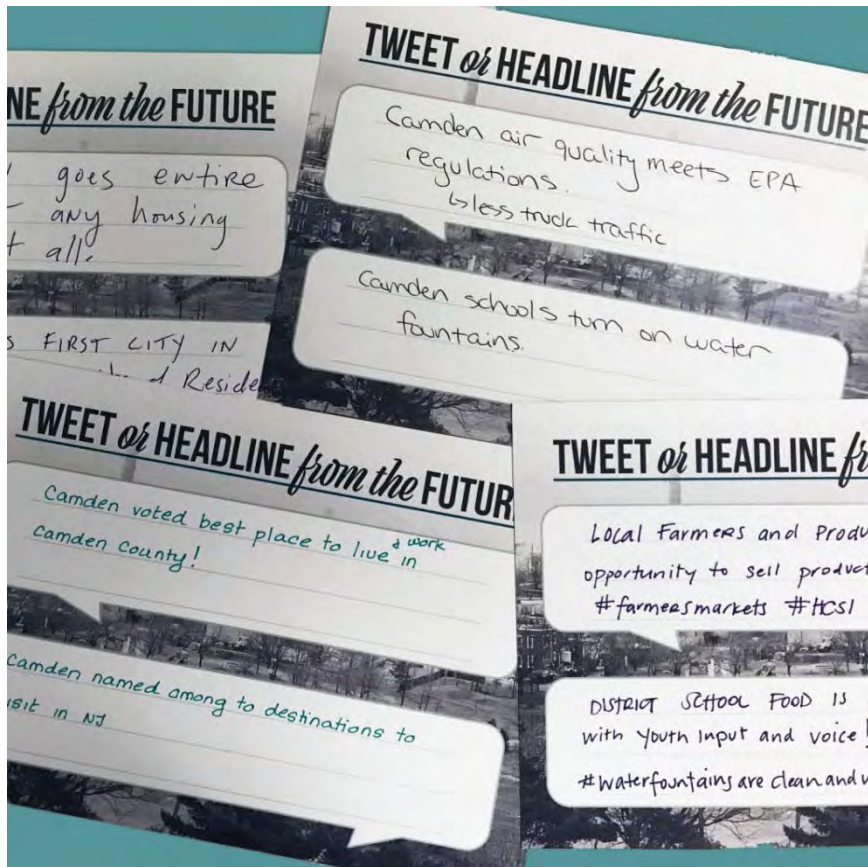 NE from the FUTURE
goes entire
any housing
all.
S FIRST CITY IN
d Reside
TWEET or HEADLINE from the FUTURE
Camden air quality meets EPA
regulations.
↳less truck traffic
Camden schools turn on water
fountains.
TWEET or HEADLINE from the FUTUR
Camden voted best place to live & work in
Camden County!
Camden named among to destinations to
isit in NJ
TWEET or HEADLINE fr
Local Farmers and Produ
opportunity to sell product
#farmersmarkets #HCSI
DISTRICT SCHOOL FOOD IS
with Youth Input and voice!
#Waterfountains are clean and w